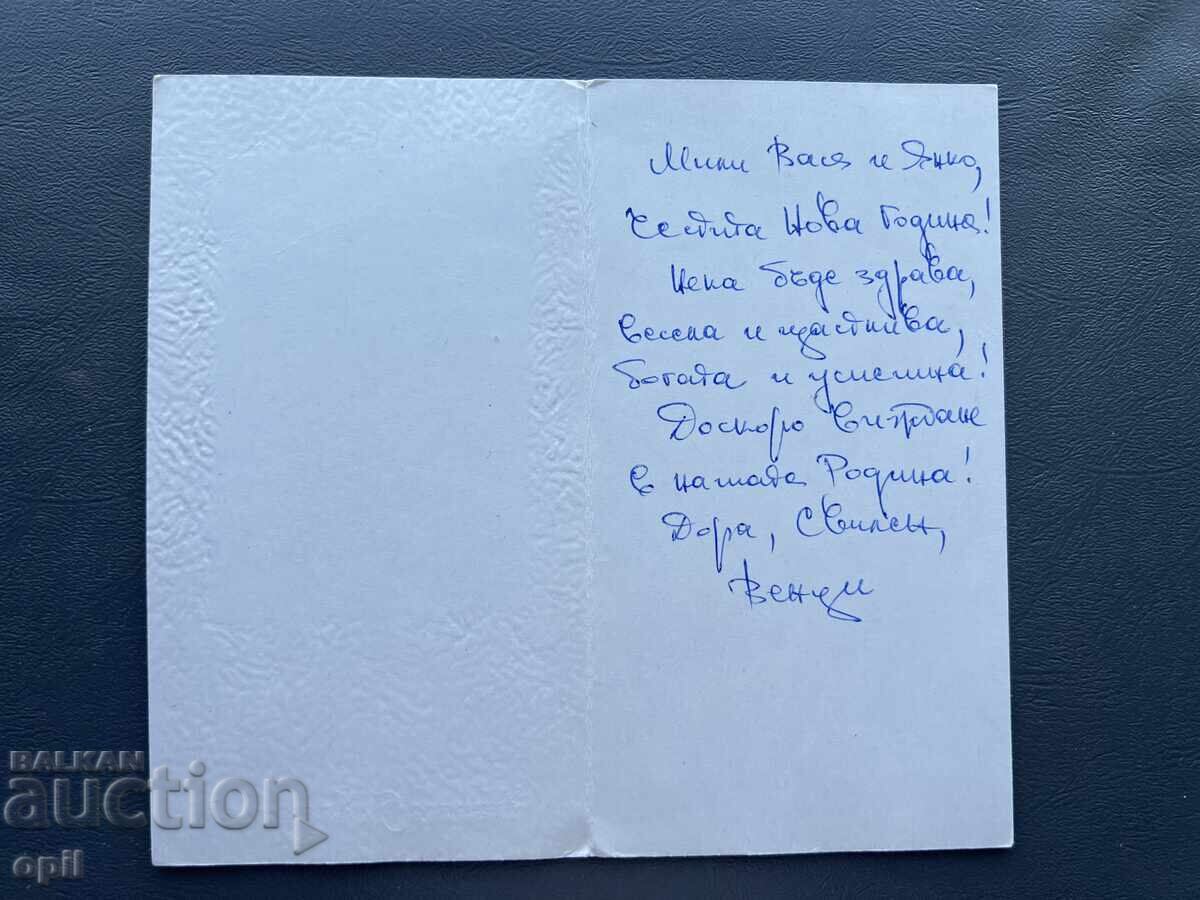 Мили Вася и Янко,
Честита Нова Година!
Нека бъде здрава,
весела и щастлива,
богата и успешна!
Доскоро виждане
в нашата Родина!
Дора, Свилен,
Венци
BALKAN
auction
opil